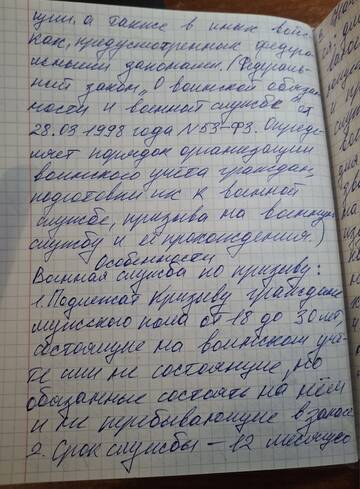 ции, а также в иных войс-
ках, предусмотренных федера
льными законами. (Федераль-
ный закон „О воинской обязан
ности и военной службе" от
28.03.1998 года N53-ФЗ. Опреде-
ляет порядок организации
воинского учета граждан,
подготовки их к военной
службе, призыва на военную
службу и её прохождения.)
Особенности
Военная служба по призыву:
1. Подлежат призыву граждане
мужского пола от 18 до 30 лет,
состоящие на воинском уче-
те или не состоящие, но
обязанные состоять на нём
и не пребывающие в запасе
2. Срок службы – 12 месяцев